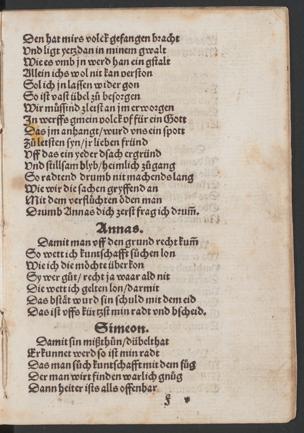 Den hat mirs volck gefangen bracht
Und ligt yetzdan in minem gwalt
Wie es umb jn werd han ein gstalt
Allein ichs wol nit kan verston
Sol ich jn lassen wider gon
So ist vast übel zů besorgen
Wir müssind zleist an jm erworgen
In werffs gmein volck vf für ein Gott
Das jm anhangt / wurd uns ein spott
Zů letsten syn / jr lieben fründ
Uff das ein yeder dsach ergründ
Und stillsam blyb / heimlich zůgang
So radtend drumb nit machends lang
Wie wir die sachen gryffend an
Mit dem verflůchten öden man
Drumb Annas dich zerst frag ich drum̄.
Annas.
Damit man uff den grund recht kum̄
So wett ich kuntschafft sůchen lon
Wie ich die möchte überkon
Sy wer gůt / recht ja waar ald nit
Die wett ich gelten lon / darmit
Das bstät wurd sin schuld mit dem eid
Das ist uffs kürtzst min radt und bscheid.
Simeon.
Damit sin mißthůn / dübelthat
Erkunnet werd so ist min radt
Das man sůch kuntschafft mit dem fůg
Der man wirt finden warlich gnůg
Dann heiter ists alls offenbar